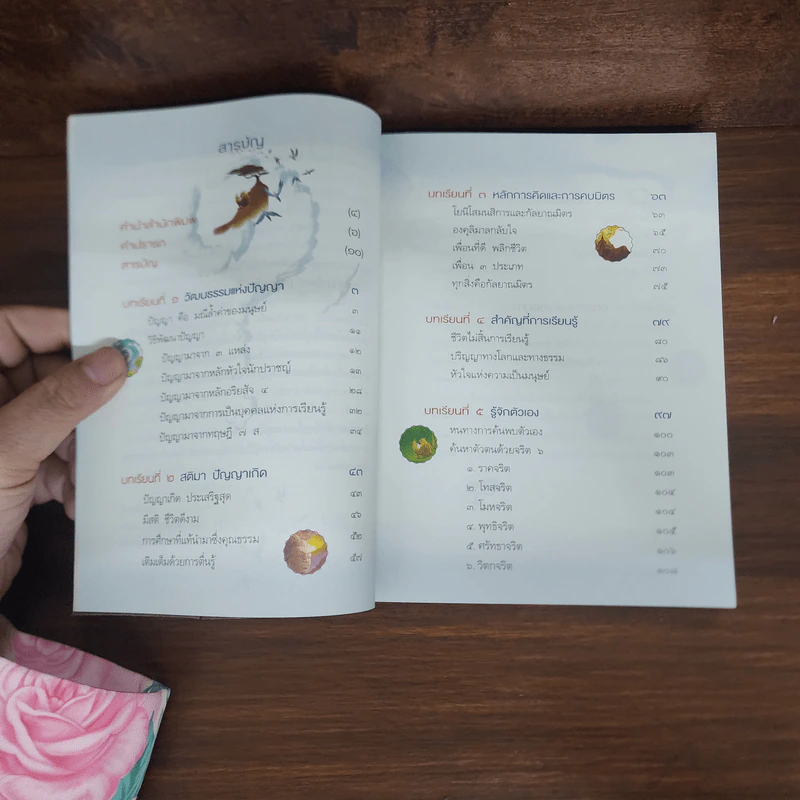 สารบัญ
คำนำสำนักพิมพ์ (๔)
คำปรารภ (๖)
สารบัญ (๑๐)
บทเรียนที่ ๑ วัฒนธรรมแห่งปัญญา ๓
ปัญญา คือ มณีล้ำค่าของมนุษย์ ๓
วิธีพัฒนาปัญญา ๑๑
ปัญญามาจาก ๓ แหล่ง ๑๒
ปัญญามาจากหลักหัวใจนักปราชญ์ ๑๓
ปัญญามาจากหลักอริยสัจ ๔ ๒๘
ปัญญามาจากการเป็นบุคคลแห่งการเรียนรู้ ๓๒
ปัญญามาจากทฤษฎี ๗ ส. ๓๔
บทเรียนที่ ๒ สติมา ปัญญาเกิด ๔๓
ปัญญาเกิด ประเสริฐสุด ๔๓
มีสติ ชีวิตดีงาม ๔๖
การศึกษาที่แท้นำมาซึ่งคุณธรรม ๕๒
เติมเต็มด้วยการตื่นรู้ ๕๗
บทเรียนที่ ๓ หลักการคิดและการคบมิตร ๖๓
โยนิโสมนสิการและกัลยาณมิตร ๖๓
องคุลิมาลกลับใจ ๖๕
เพื่อนที่ดี พลิกชีวิต ๗๐
เพื่อน ๓ ประเภท ๗๓
ทุกสิ่งคือกัลยาณมิตร ๗๕
บทเรียนที่ ๔ สำคัญที่การเรียนรู้ ๗๙
ชีวิตไม่สิ้นการเรียนรู้ ๘๐
ปริญญาทางโลกและทางธรรม ๘๖
หัวใจแห่งความเป็นมนุษย์ ๙๐
บทเรียนที่ ๕ รู้จักตัวเอง ๙๗
หนทางการค้นพบตัวเอง ๑๐๐
ค้นหาตัวตนด้วยจริต ๖ ๑๐๓
๑. ราคจริต ๑๐๓
๒. โทสจริต ๑๐๔
๓. โมหจริต ๑๐๔
๔. พุทธิจริต ๑๐๕
๕. ศรัทธาจริต ๑๐๖
๖. วิตกจริต ๑๐๘